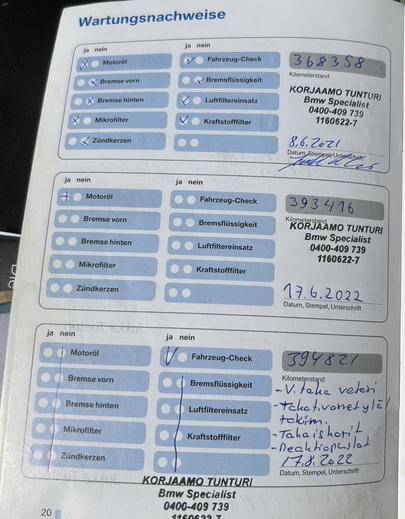 Wartungsnachweise
ja nein
ja nein
Motoröl
Fahrzeug-Check
368358
Kilometerstand
Bremse vorn
Bremsflüssigkeit
KORJAAMO TUNTURI
Bmw Specialist
0400-409 739
1160622-7
Bremse hinten
Luftfiltereinsatz
Mikrofilter
Kraftstofffilter
Zündkerzen
8.6.2021
Datum, Stempel, Unterschrift
ja nein
ja nein
Motoröl
Fahrzeug-Check
393416
Kilometerstand
KORJAAMO TUNTURI
Bmw Specialist
0400-409 739
1160622-7
Bremse vorn
Bremsflüssigkeit
Bremse hinten
Luftfiltereinsatz
Mikrofilter
Kraftstofffilter
Zündkerzen
17.6.2022
Datum, Stempel, Unterschrift
ja nein
ja nein
Motoröl
Fahrzeug-Check
394821
Kilometerstand
Bremse vorn
Bremsflüssigkeit
- V. taka vetari
Bremse hinten
Luftfiltereinsatz
- Takaivonetylä
tokim.
Mikrofilter
Kraftstofffilter
- Takaiskarit
- Reaktiopuslat
Zündkerzen
17.8.2022
Datum, Stempel, Unterschrift
KORJAAMO TUNTURI
Bmw Specialist
0400-409 739
1160622-7
20